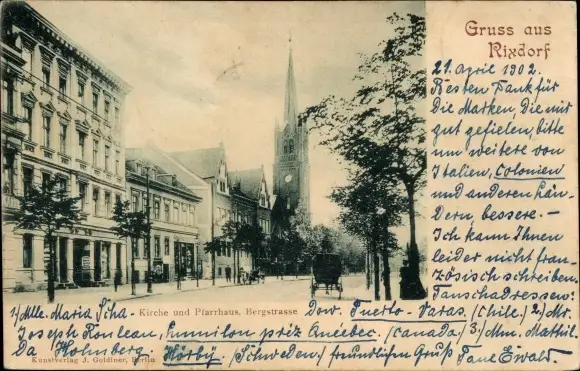 Gruss aus
Rixdorf
21. April 1902.
Besten Dank für
die Marken, die mir
gut gefielen, bitte
um weitere von
Italien, Colonien
und anderen Län-
dern, bessere. —
Ich kann Ihnen
leider nicht fran-
zösisch schreiben.
Tauschadressen:
Kirche und Pfarrhaus, Bergstrasse
1/ Mlle. Maria Scha-
Dow. Puerto-Varas. (Chile.) 2/ Mr.
Joseph Rouleau, Quebec. (Canada) 3./ Mm. Mathil-
da Holmberg. Hörby. (Schweden) freundlichen Gruß Paul Ewald.
Kunstverlag J. Goldiner, Berlin